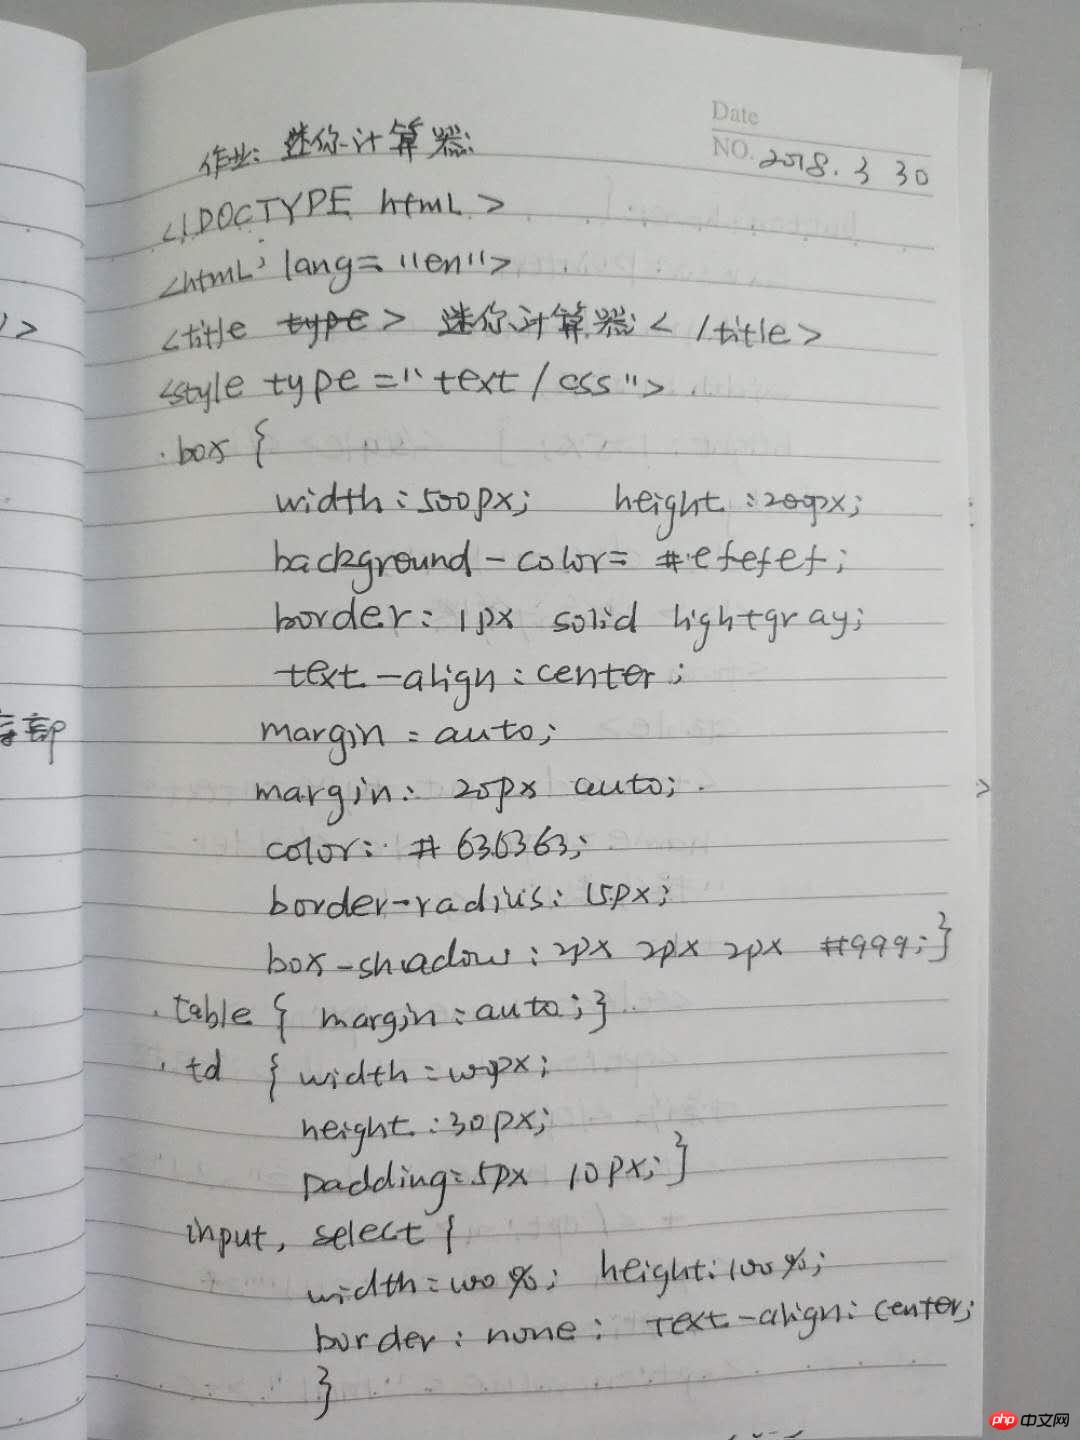 Date
NO. 2018.3 30
作业: 迷你计算器:
<!DOCTYPE html>
<html lang="en">
<title type> 迷你计算器: < /title>
<style type="text/css">
.box {
width:500px; height:200px;
background-color= #efefef;
border: 1px solid lightgray;
text-align:center;
margin=auto;
margin: 20px auto;
color: #636363;
border-radius: 15px;
box-shadow: 2px 2px 2px #999;}
.table { margin:auto;}
.td { width:100px;
height:30px;
padding:5px 10px;}
input, select {
width=100%; height:100%;
border: none: text-align: center;
}
>
php 中文网